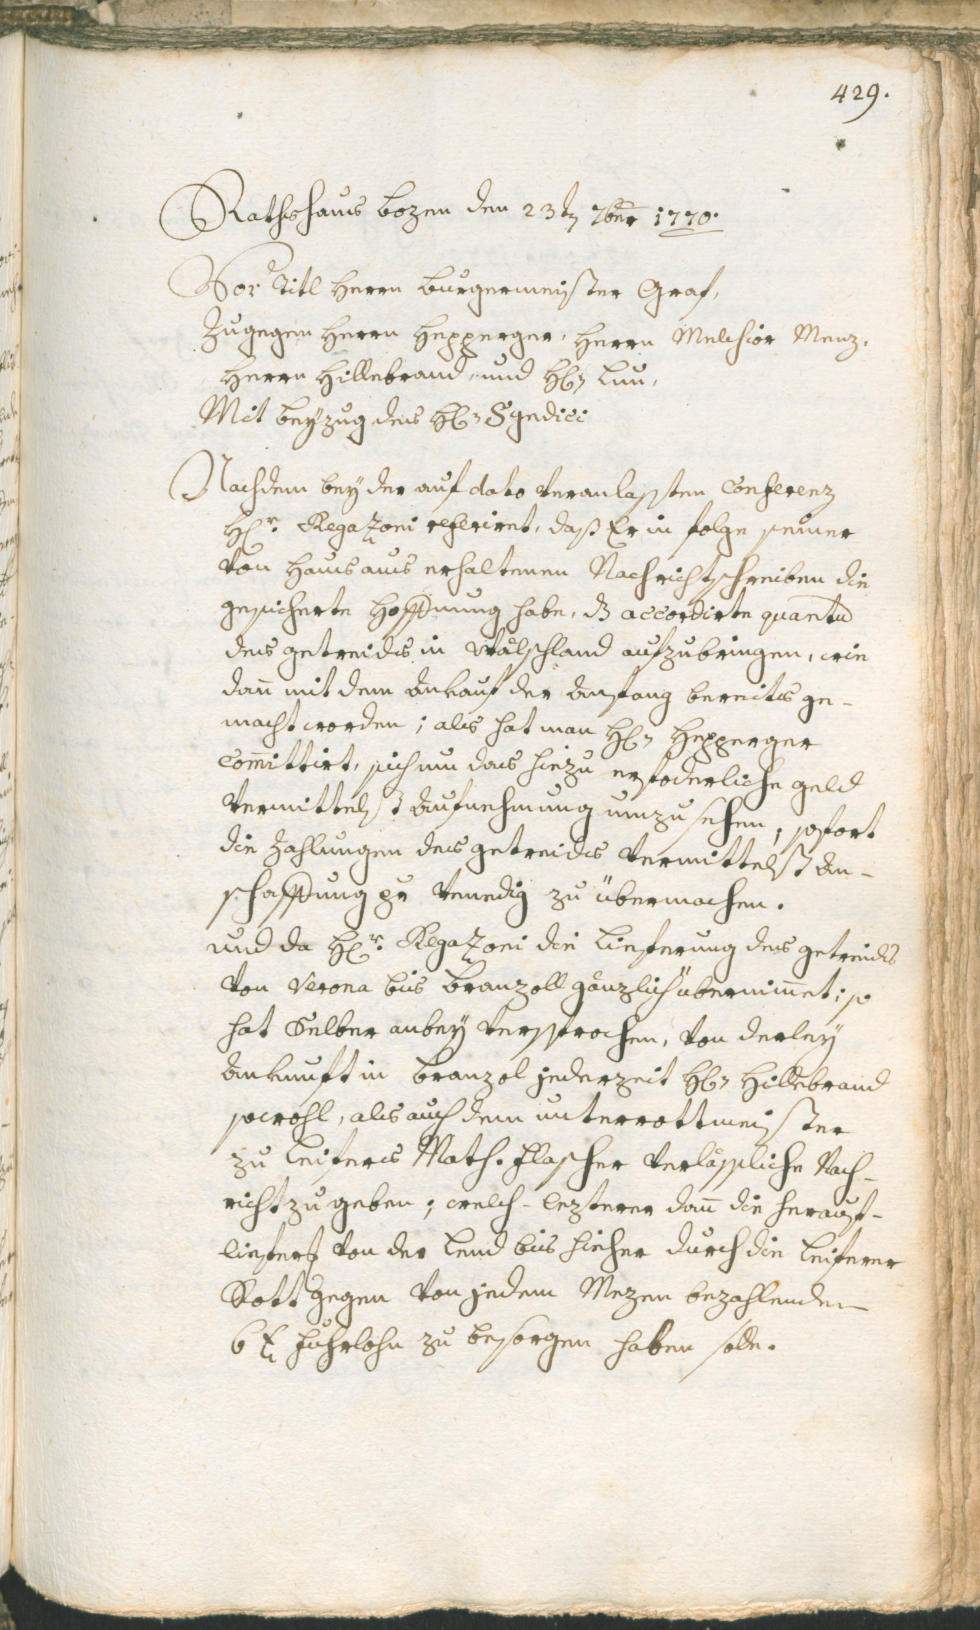 429.
Rathshaus Bozen den 23tn 7ber 1770.
Vor Titl Herrn Burgermeister Graf,
Zugegen Herrn Hepperger, Herrn Melchior Menz,
Herrn Hillebrand, und Hr
Mit beyzug des Hrn Syndici
Nachdem bey der auf dato veranlassten Conferenz
Hr. Regazoni referiret, daß Er in folge seiner
von Haus aus erhaltenen Nachrichtschreiben die
gesicherte Hoffnung habe, dz accordirte quantu
des getreids in Wälschland aufzubringen, wie
dan mit dem Ankauf der Anfang bereits ge-
macht worden; als hat man Hrn Hepperger
Committirt, sich um das hiezu erfoderliche geld
vermittelst Aufnehmung umzusehen, sofort
die Zahlungen des getreids vermittelst An-
schaffung pr Venedig zu übermachen.
und da Hr. Regazoni die Lieferung des getreids
von Verona bis Branzoll gänzlich übernimet; so
hat Selber anbey versprochen, von derley
Ankunft in Branzol jederzeit Hrn Hillebrand
sowohl, als auch dem unterrottmeister
zu Leifers Math. Flascher verlässliche Nach-
richt zu geben; welch-lezterer dan die herauf-
lieferg von der Lend bis hieher durch die Leiferer
Rott gegen von jedem Mezen bezahlenden
6 x fuhrlohn zu besorgen haben solle.